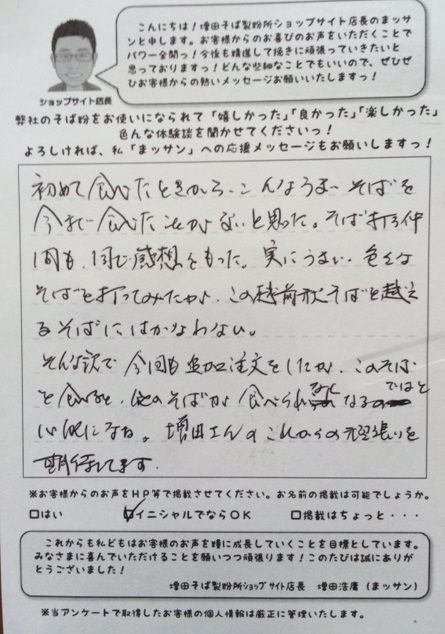 こんにちは!増田そば製粉所ショップサイト店長のまッサ
ンと申します。お客様からのお喜びのお声をいただくことで
パワー全開っ!今後も精進して挽きに頑張っていきたいと
思っておりますっ!どんな些細なことでもいいので、ぜひぜ
ひお客様からの熱いメッセージお願いいたしますっ!
ショップサイト店長
弊社のそば粉をお使いになられて「嬉しかった」「良かった」「楽しかった」
色んな体験談を聞かせてくださいっ!
よろしければ、私「まッサン」への応援メッセージもお願いしますっ!
初めて食べたときから、こんなうまいそばを
今まで食べたことがないと思った。そば打ち仲
間も、同じ感想をもった。実にうまい。色々な
そばを打ってみたが、この越前そばを越え
るそばにはかなわない。
そんな訳で今回も追加注文をしたが、このそば
を食べると、他のそばが食べられなくなるのではと
心配になる。増田さんのこれからの頑張りを
期待してます。
※お客様からのお声をHP等で掲載させてください。お名前の掲載は可能でしょうか。
□はい ☑イニシャルでならOK □掲載はちょっと・・・
これからも私どもはお客様のお声を糧に成長していくことを目標としています。
みなさまに喜んでいただけることを願いつつ頑張ります!このたびは誠にありが
とうございました!
増田そば製粉所ショップサイト店長 増田浩庸(まッサン)
※当アンケートで取得したお客様の個人情報は厳正に管理いたします。